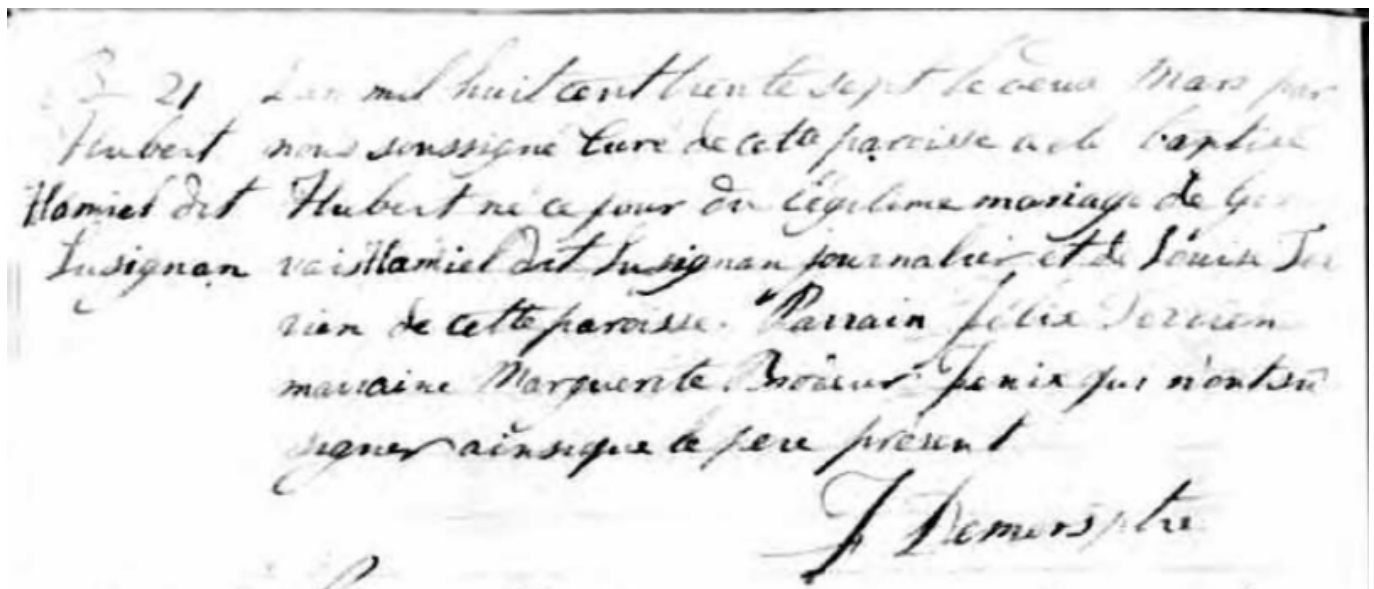 B 21 L'an mil huit cent trente sept le deux Mars par
Hubert nous soussigné Curé de cette paroisse a été baptisé
Hamiel dit Hubert né ce jour du légitime mariage de Ger
Lusignan vais Hamiel dit Lusignan journalier et de Louise Ter
rien de cette paroisse. Parrain Félix Terrien
marraine Marguerite Fenix qui n'ont su
signer ainsique le pere présent
J Demers ptre